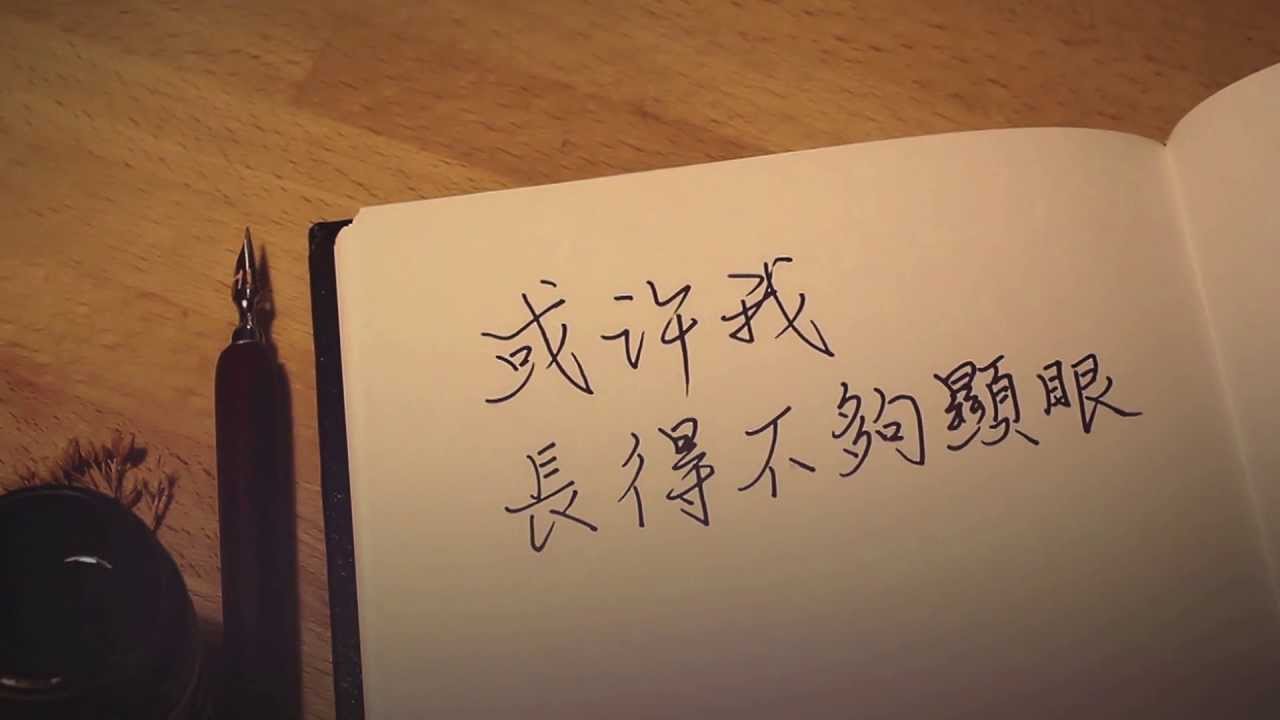 或许我
長得不夠顯眼